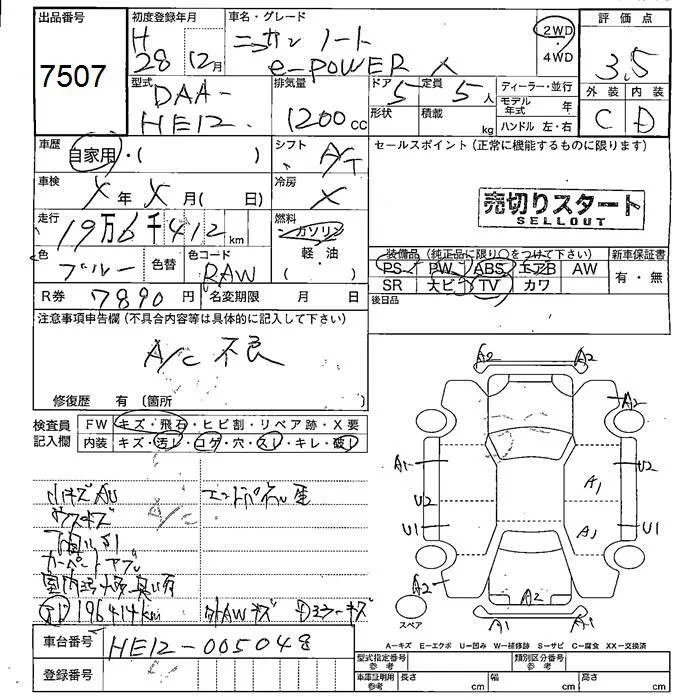 出品番号
7507
初度登録年月
H
28 12月
車名・グレード
ニッサン ノート
e-POWER
2WD
・
4WD
評価点
3.5
外装 内装
C D
型式
DAA-
HE12
排気量
1200cc
ドア 5
定員 5人
形状
積載 kg
ディーラー・並行
モデル年式 年
ハンドル 左・右
車歴
自家用・( )
シフト A/T
セールスポイント (正常に機能するものに限ります)
車検 X年X月( 日)
冷房 X
売切りスタート
SELLOUT
走行 19万6千412km
燃料
ガソリン
軽・油
( )
色 ブルー
色替
色コード RAW
装備品 (純正品に限り○をつけて下さい)
PS PW ABS エアB AW
SR ナビ TV カワ
新車保証書
有・無
後日品
R券 7890円
名変期限 月 日
注意事項申告欄 (不具合内容等は具体的に記入して下さい)
A/C 不良
修復歴 有 〔箇所
検査員
記入欄
FW キズ・飛石・ヒビ割・リペア跡・X要
内装 キズ・汚レ・コゲ・穴・スレ・キレ・破レ
A2 A2
A2
A1 U2
A1
U2
U1 A1 U1
A2
A2
A1 A1
スペア
小キズAU
A/C
196414km 外AWキズ Dミラーキズ
A−キズ E−エクボ U−凹み W−補修跡 S−サビ C−腐食 XX−交換済
車台番号 HE12-005048
登録番号
型式指定番号
参考
類別区分番号
参考
車庫証明用
参考
長さ cm
幅 cm
高さ cm